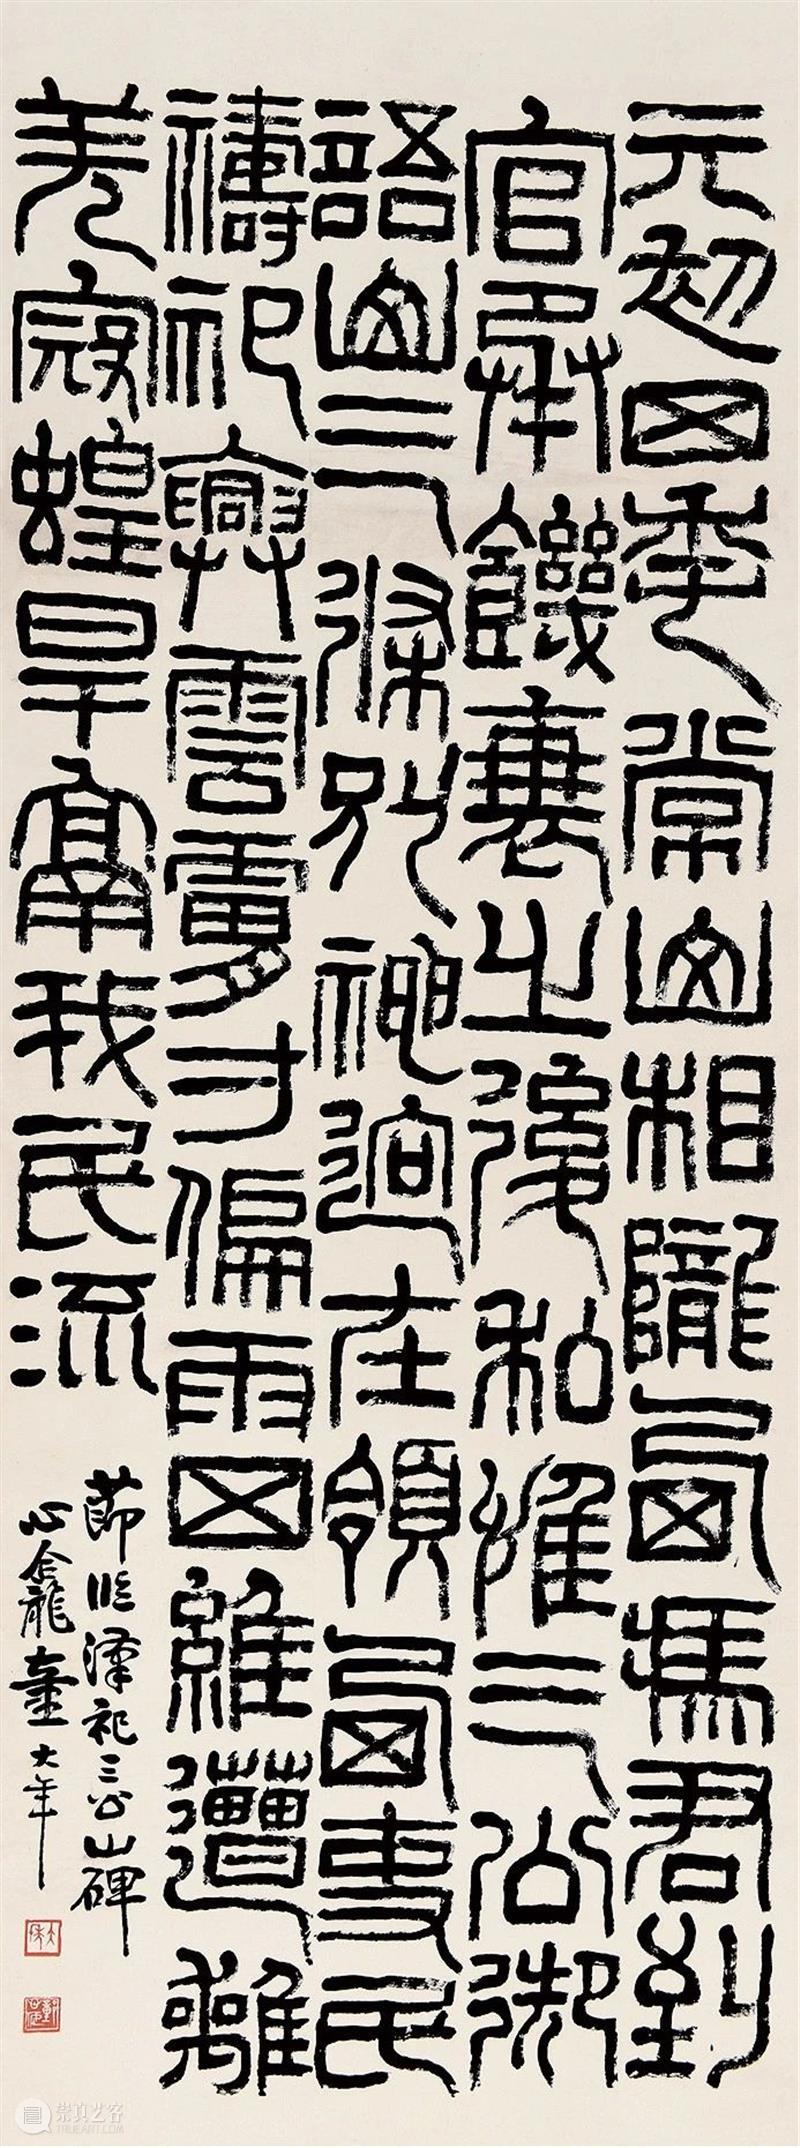 元初四年常山相隴西馮君到
官承饑衰之後私惟三公御
語山三條別神迥在領西吏民
禱祀興雲膚寸偏雨四維遭離
羌寇蝗旱鬲我民流
節臨漢祀三公山碑
心龕童大年
崇真艺客
TRUEART.COM